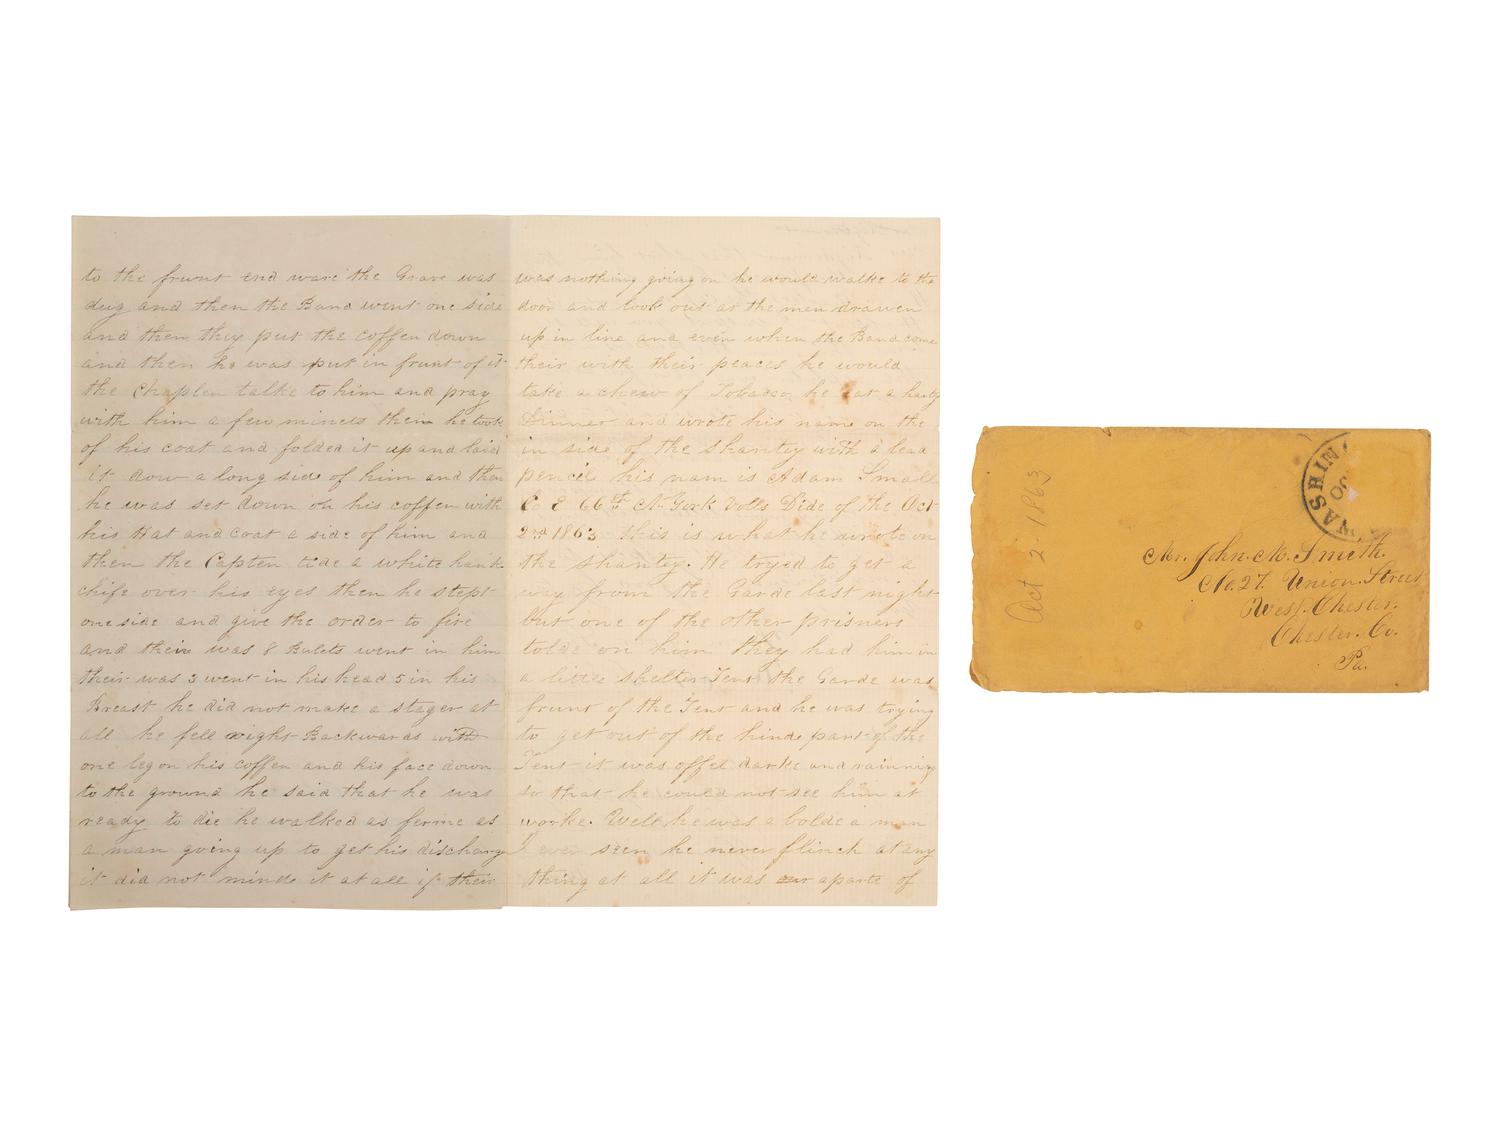 to the frunt end ware the Grave was
dug and then the Band went one side
and then they put the coffen down
and then he was put in frunt of it
the Chaplen talke to him and pray
with him a few minets then he took
of his coat and folded it up and laid
it dow a long side of him and then
he was set down on his coffen with
his Hat and coat a side of him and
then the Capten tide a white hank
chife over his eyes then he stept
one side and give the order to fire
and their was 8 Bulets went in him
their was 3 went in his head 5 in his
Breast he did not make a stager at
all he fell right Backwards with
one leg on his coffen and his face down
to the ground he said that he was
ready to die he walked as ferme as
a man going up to get his discharge
it did not minde it at all if their
was nothing going on he would walke to the
door and look out at the men drawen
up in line and even when the Band come
their with their peaces he would
take a chew of Tobacco he eat a harty
Dinner and wrote his name on the
in side of the shanty with a lead
pencil his nam is Adam Small
Co E 66th N York Volls Dide of the Oct
2nd 1863 this is what he wrote on
the shanty. He tryed to get a
way from the Garde last night
but one of the other prisners
tolde on him they had him in
a little shelter Tent the Garde was
frunt of the Tent and he was trying
to get out of the hinde part of the
Tent it was offel darke and raining
so that he could not see him at
worke. Well he was a bolde a man
I ever seen he never flinch at any
thing at all it was our aparte of
Oct 2 - 1863
WASHIN
OC
Mr. John. M. Smith.
No. 27 Union. Street
West. Chester.
Chester. Co.
Pa.